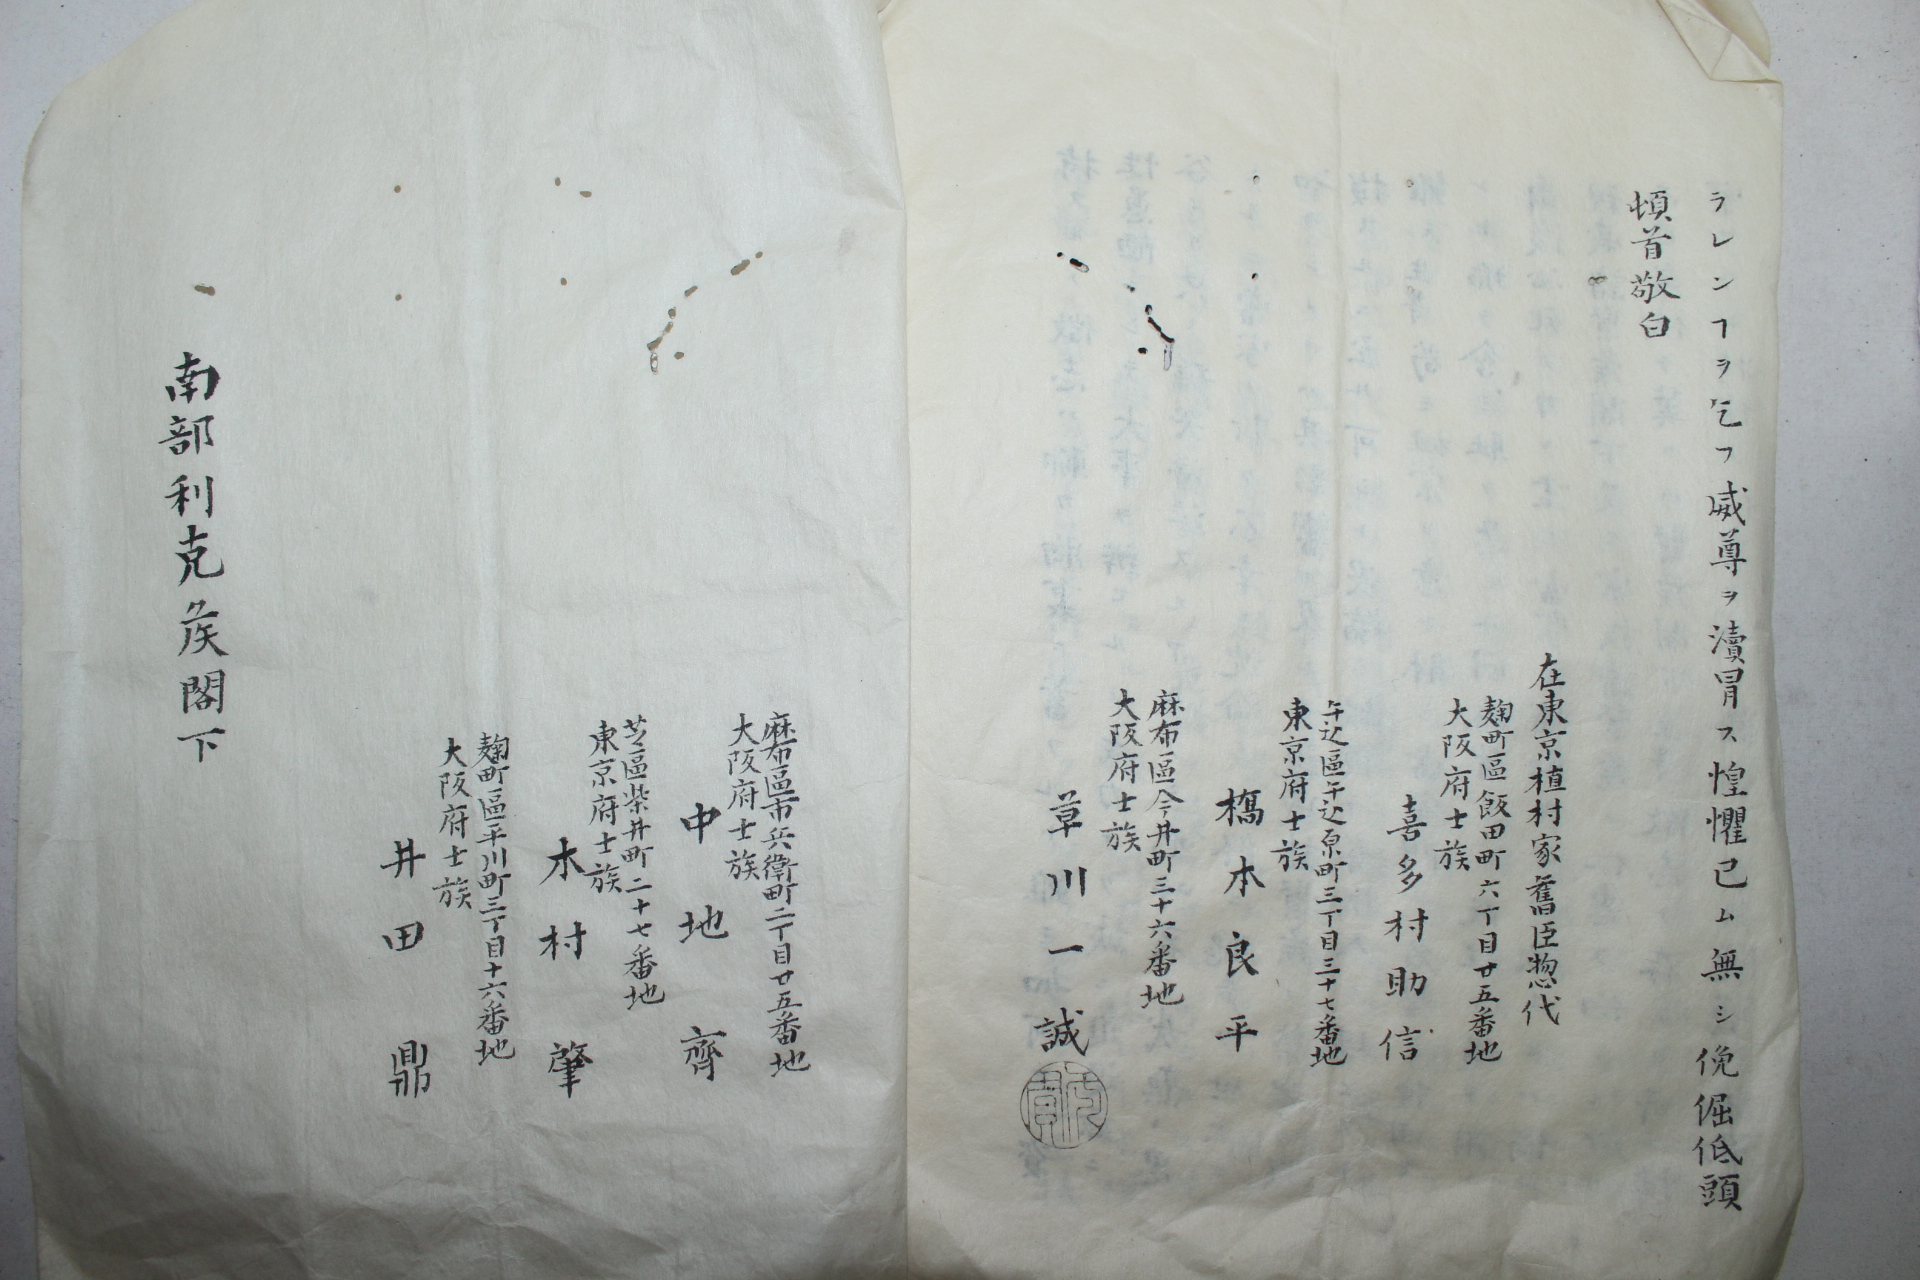 ラレンヿヲ乞フ威尊ヲ瀆冒ス惶懼已ム無シ俛倔低頭
頓首敬白
在東京植村家舊臣惣代
麹町區飯田町六丁目廿五番地
大阪府士族
喜多村助信
牛込區牛込原町三丁目三十七番地
東京府士族
橋本良平
麻布區今井町三十六番地
大阪府士族
草川一誠
麻布區市兵衛町二丁目廿五番地
大阪府士族
中地齊
芝區柴井町二十七番地
東京府士族
木村肇
麹町區平川町三丁目十六番地
大阪府士族
井田鼎
南部利克矦閣下